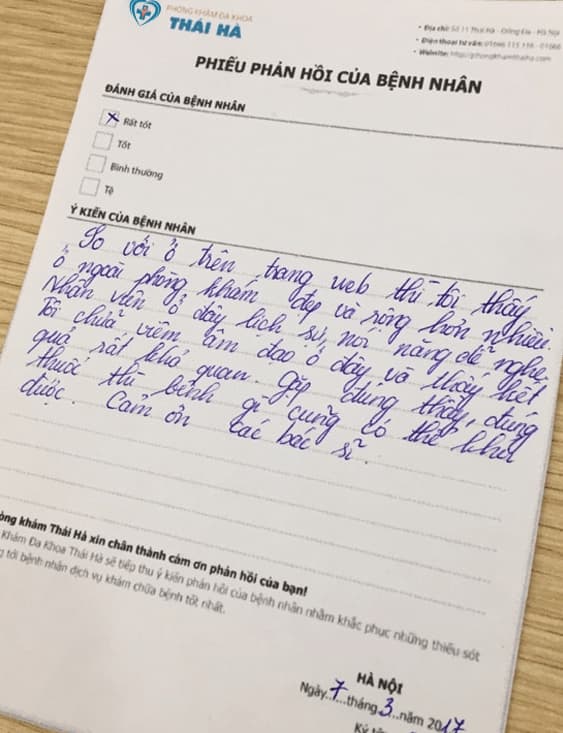 PHÒNG KHÁM ĐA KHOA
THÁI HÀ
• Địa chỉ: Số 11 Thái Hà - Đống Đa - Hà Nội
• Điện thoại tư vấn:
• Website: http://phongkhamthaiha.com
PHIẾU PHẢN HỒI CỦA BỆNH NHÂN
ĐÁNH GIÁ CỦA BỆNH NHÂN
X Rất tốt
Tốt
Bình thường
Tệ
Ý KIẾN CỦA BỆNH NHÂN
So với ở trên trang web thì tôi thấy
ở ngoài phòng khám đẹp và rộng hơn nhiều.
Nhân viên ở đây lịch sự, nói năng dễ nghe.
Tôi chữa viêm âm đạo ở đây và thấy kết
quả rất khả quan. Gặp đúng thầy, đúng
thuốc thì bệnh gì cũng có thể khỏi
được. Cảm ơn các bác sĩ.
òng khám Thái Hà xin chân thành cám ơn phản hồi của bạn!
Khám Đa Khoa Thái Hà sẽ tiếp thu ý kiến phản hồi của bệnh nhân nhằm khắc phục những thiếu sót
g tới bệnh nhân dịch vụ khám chữa bệnh tốt nhất.
HÀ NỘI
Ngày..7...tháng.3...năm 2017